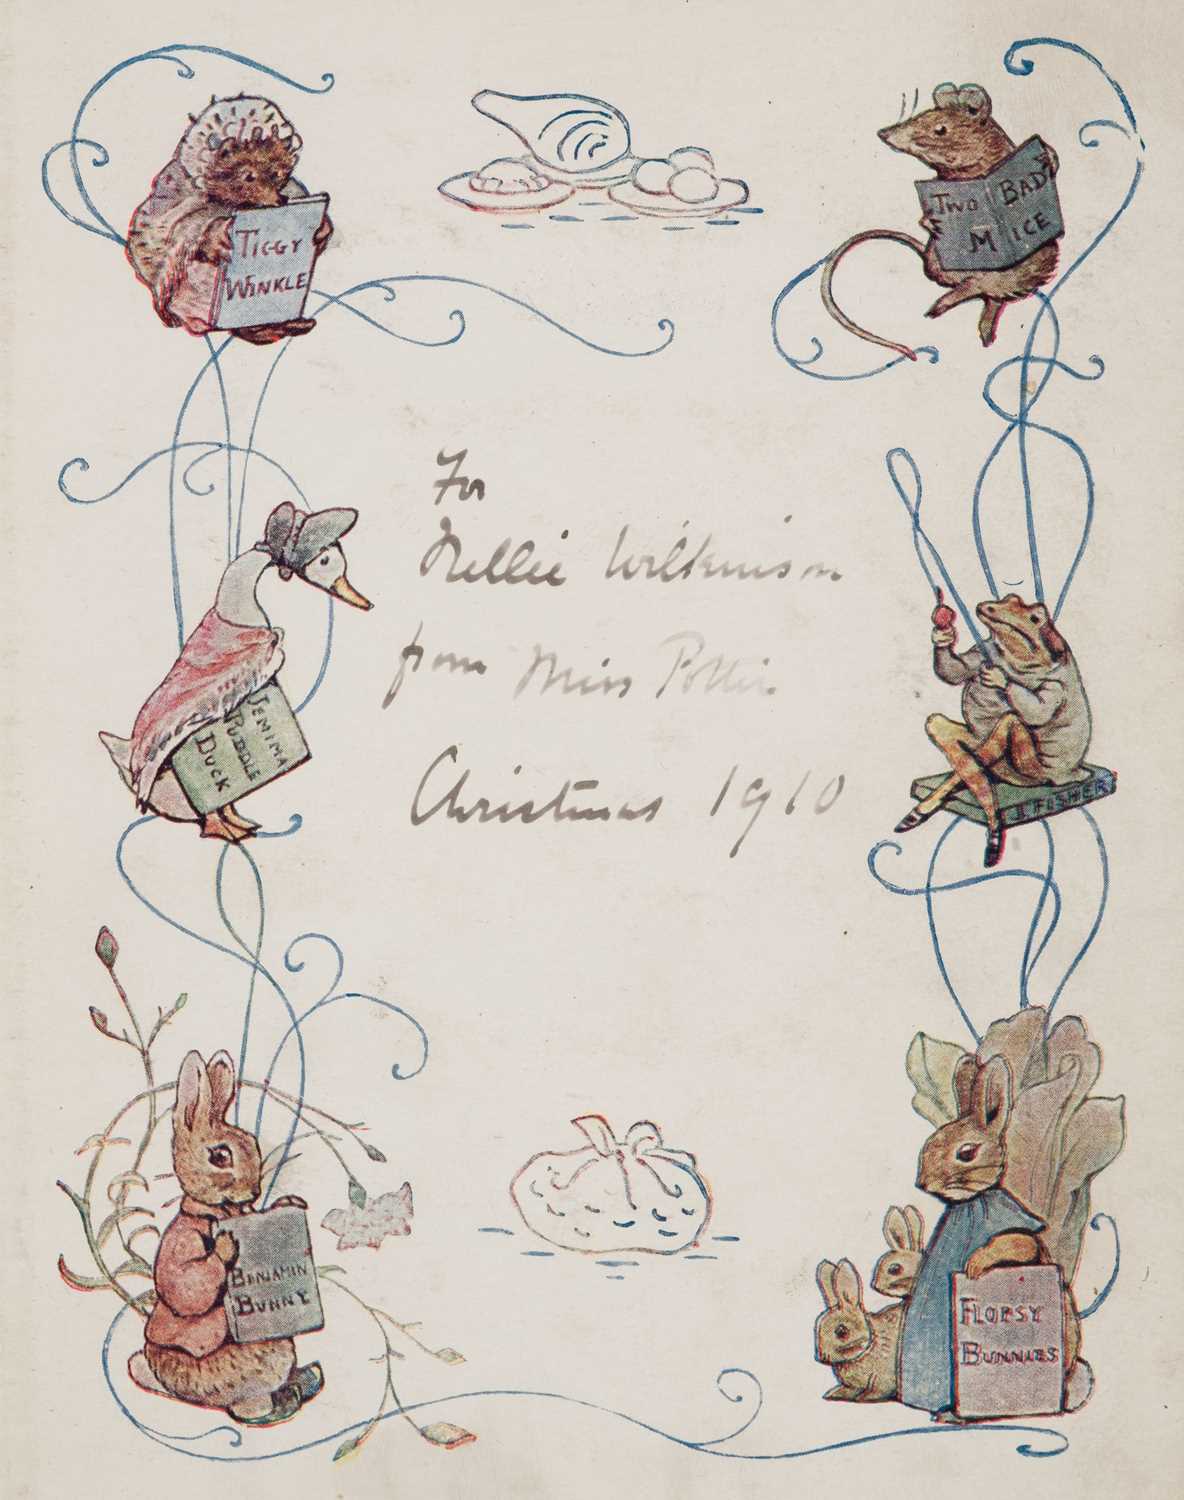 TIGGY
WINKLE
TWO BAD
MICE
For
Nellie Wilkinson
from Miss Potter.
Christmas 1910
JEMIMA
PUDDLE
DUCK
J. FISHER
BENJAMIN
BUNNY
FLOPSY
BUNNIES